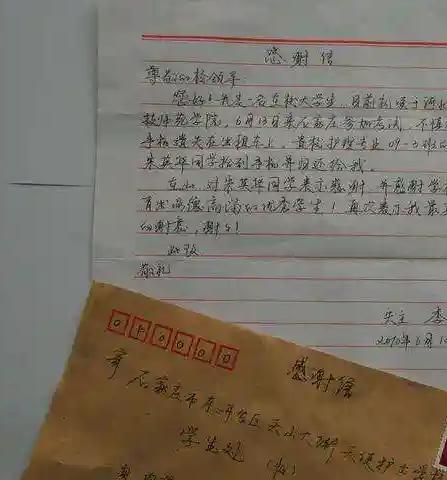 感谢信
尊敬的校领导:
您好!我是一名在校大学生,目前就读于河北
技师范学院,6月13日来石家庄参加考试,不慎
手机遗失在出租车上,贵校护理专业09-3班的
宋英华同学拾到手机并归还给我。
在此,对宋英华同学表示感谢,并感谢学
育出品德高尚的优秀学生!再次表示我最
的谢意,谢谢!
此致
敬礼
失主 李
2010年6月1
010000
感谢信
寄 石家庄市 天山大街 天使护士学校
学生处 (收)